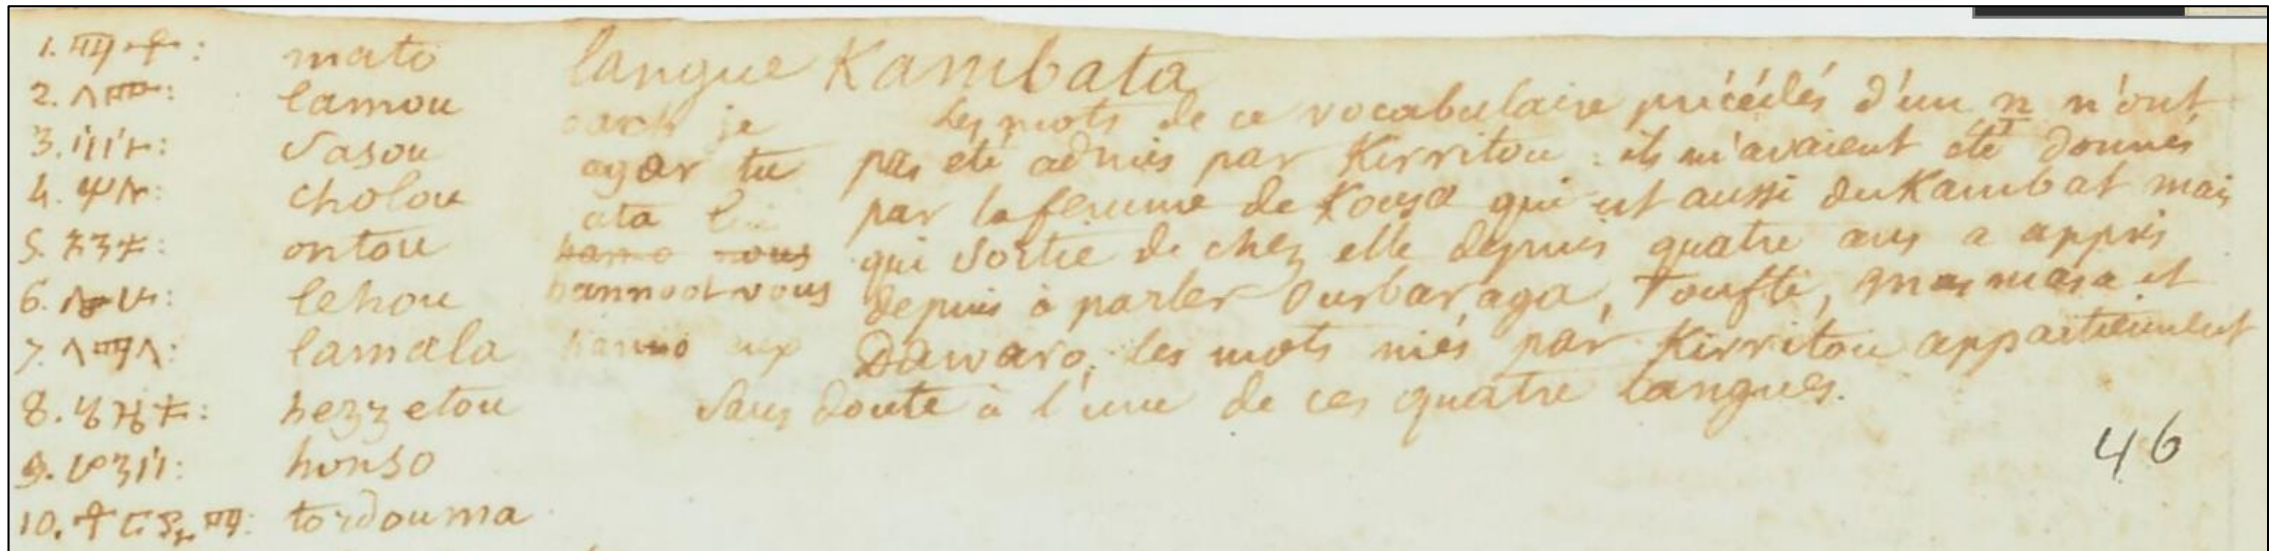 langue Kambata
1. ማቶ: mato
2. ላሙ: lamou
3. ሳሱ: sasou
4. ሾሉ: cholou
5. ኦንቱ: ontou
6. ሌሁ: lehou
7. ላማላ: lamala
8. ሄዜቱ: hezzetou
9. ሆንሶ: honso
10. ቶርዱማ: tordouma
je
agar tu
ata lui
hamo vous
hannoot vous
hanno eux
Les mots de ce vocabulaire précédés d'un n n'ont
pas été admis par Kirritou : ils m'avaient été donnés
par la femme de Kousa qui est aussi du Kambat mais
qui sortie de chez elle depuis quatre ans a appris
depuis à parler Ourbaraga, Toufté, Masmasa et
Dawaro. les mots niés par Kirritou appartiennent
sans doute à l'une de ces quatre langues.
46